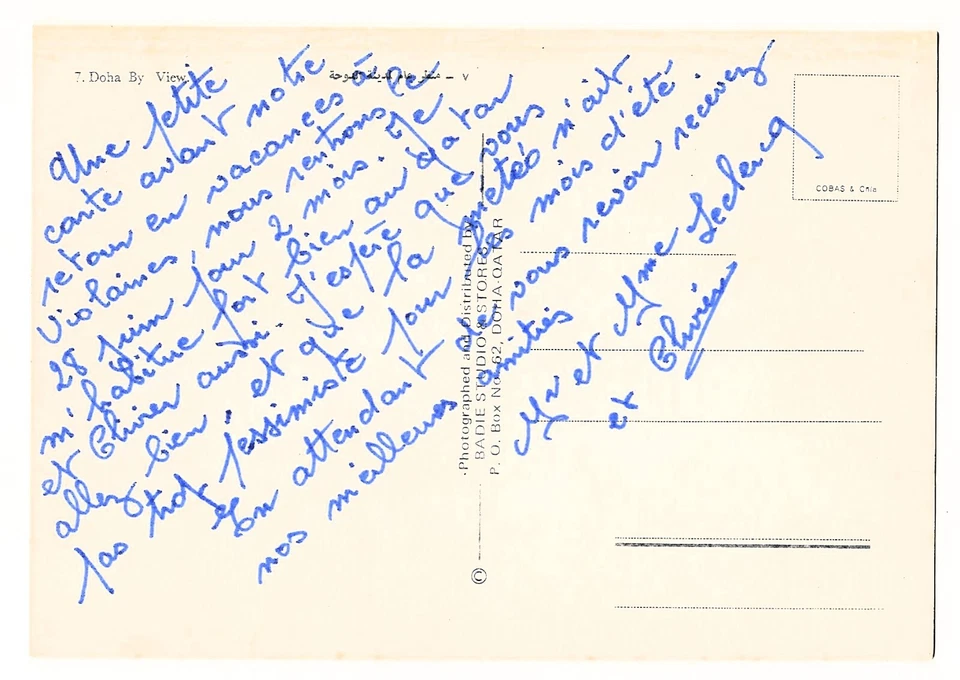 7. Doha By View
٧ – منظر عام لمدينة الدوحة
Une petite
carte avant notre
retour en vacances à
Violaines, nous rentrons le
28 juin pour 2 mois. Je
m'habitue fort bien au Qatar
et Olivier aussi. J'espère que vous
allez bien, et que la météo n'ait
pas trop pessimiste pour les mois d'été
En attendant de vous revoir recevez
nos meilleures amitiés
Mr et Mme Leclercq
et Olivier
Photographed and Distributed by
BADIE STUDIO & STORES
P. O. Box No. 62, DOHA-QATAR
©
COBAS &